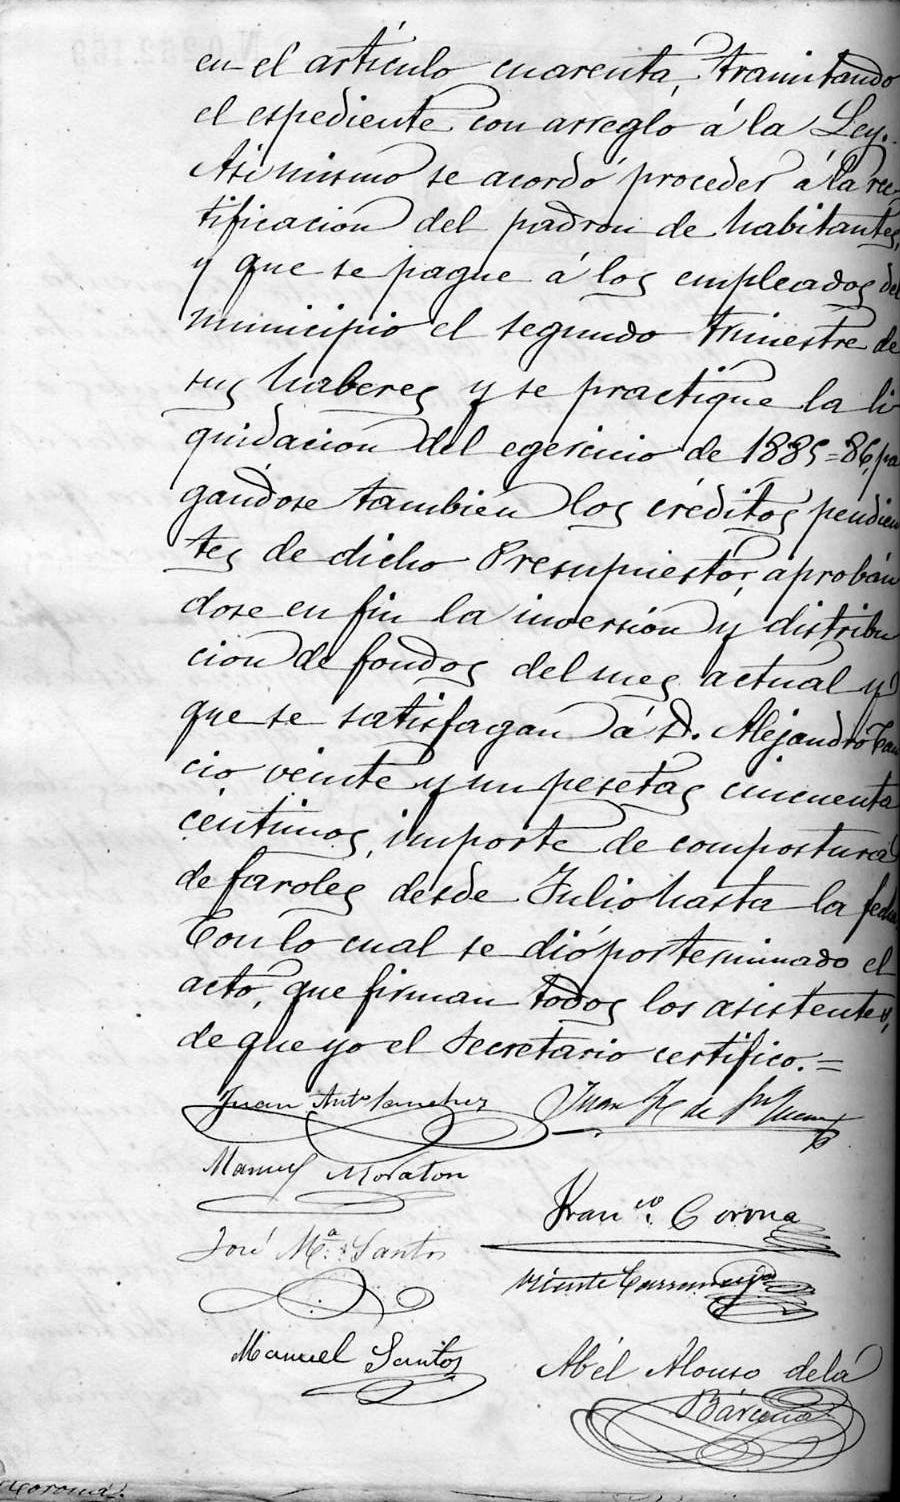 en el artículo cuarenta, tramitando
el espediente con arreglo á la Ley.
Asi mismo se acordó proceder á la rec-
tificacion del padron de habitantes,
y que se pague á los empleados del
municipio el segundo trimestre de
sus haberes y se practique la li
quidacion del egercicio de 1885=86, pa
gandose tambien los créditos pendien
tes de dicho Presupuesto, aprobán
dose en fin la inversión y distribu
cion de fondos del mes actual y
que se satisfagan á D. Alejandro
cio veinte y un pesetas cincuenta
centimos, importe de compostura
de faroles desde Julio hasta la fecha.
Con lo cual se dió por terminado el
acto, que firman todos los asistentes,
de que yo el Secretario certifico.=
Juan Anto Sanchez
Juan de
Manuel Moraton
Franco. Corona
José Ma. Santos
Vicente
Manuel Santos
Abél Alonso de la
Bárcena
Coroná.